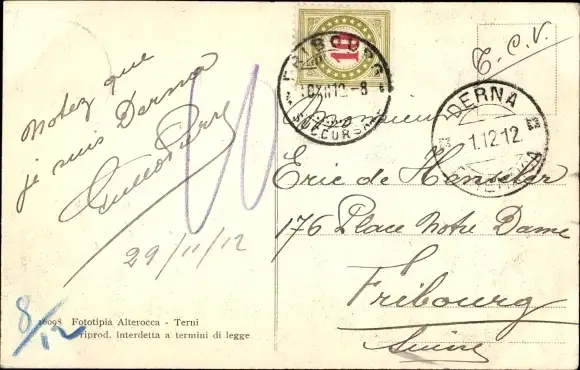 Notez que
je suis Derna
29/11/12
8/12
16098 Fototipia Alterocca - Terni
riprod. interdetta a termini di legge
10
FRIBOURG
10XII12.-8
SUCCURSALE
T.C.V.
DERNA
1.12.12
Monsieur
Eric de Henseler
176 Place Notre Dame
Fribourg
Suisse